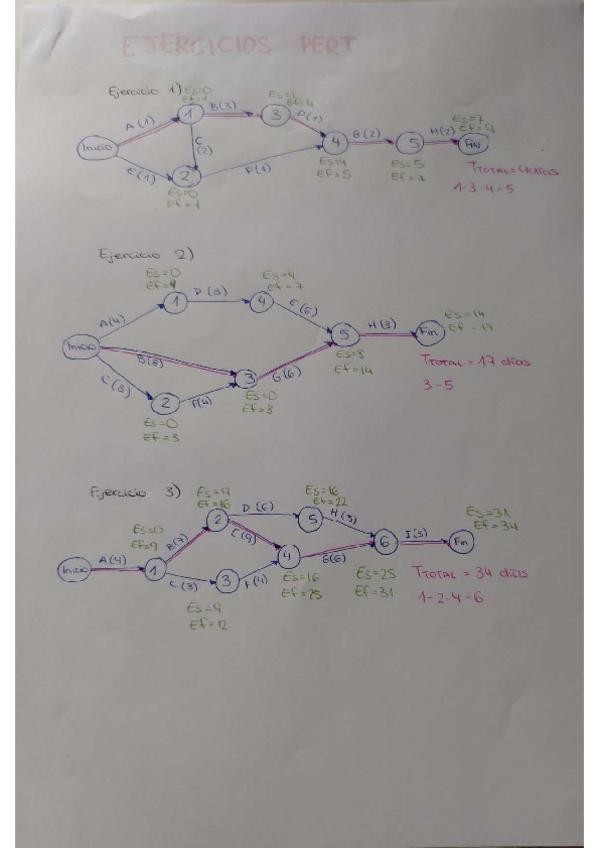 EJERCICIOS PERT
Ejercicio 1)
Es=0
Ef=1
A(1)
1
B(3)
Es=1
Ef=4
3
D(1)
Inicio
C
(2)
E(1)
2
Es=0
Ef=1
F(1)
4
Es=4
Ef=5
G(2)
5
Es=5
Ef=7
H(2)
Es=7
Ef=9
Fin
TTOTAL=9dias
1-3-4-5
Ejercicio 2)
Es=0
Ef=4
1
D(3)
Es=4
Ef=7
4
E(6)
A(4)
Inicio
B(8)
C(3)
2
Es=0
Ef=3
F(4)
3
Es=0
Ef=8
G(6)
5
Es=8
Ef=14
H(3)
Es=14
Ef=17
Fin
TTOTAL = 17 dias
3-5
Ejercicio 3)
Es=9
Ef=16
2
D(6)
Es=16
Ef=22
5
H(3)
Es=0
Ef=9
Inicio
A(4)
1
B(7)
C(3)
3
Es=9
Ef=12
E(9)
4
Es=16
Ef=25
G(6)
6
Es=25
Ef=31
I(3)
Es=31
Ef=34
Fin
TTOTAL = 34 dias
1-2-4-6